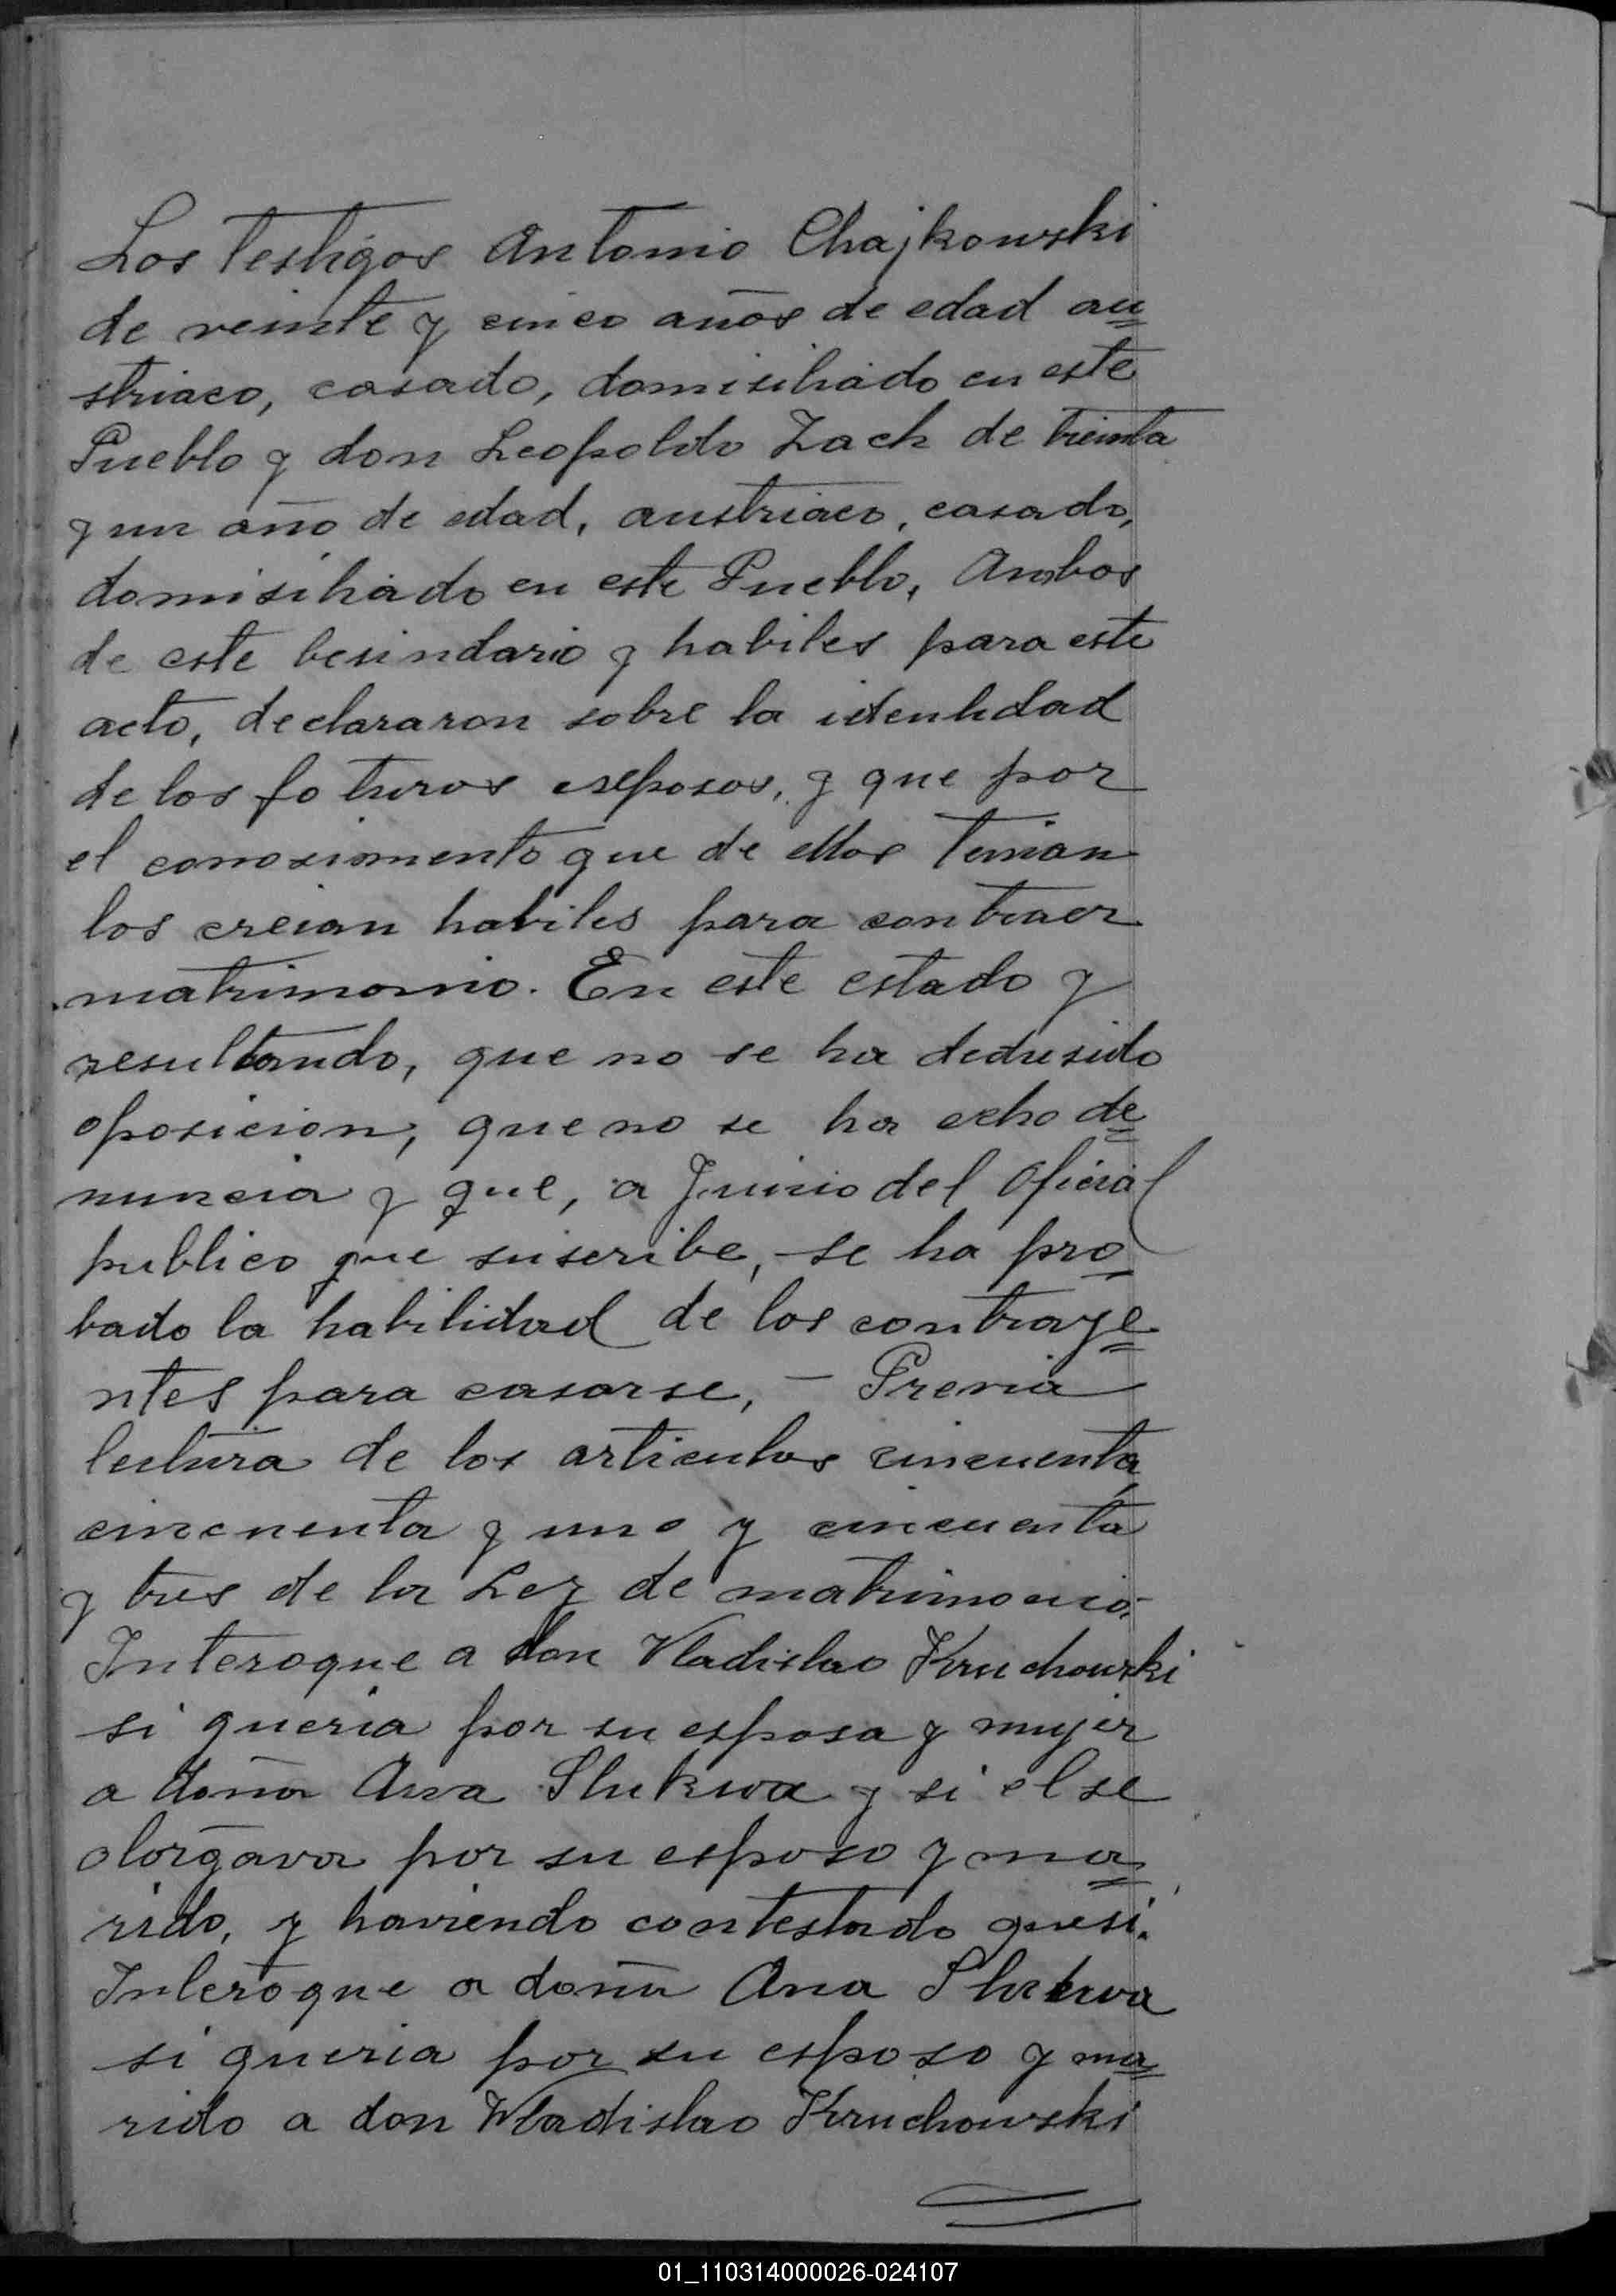 Los Testigos Antonio Chajkowski
de veinte y cinco años de edad au=
striaco, casado, domisiliado en este
Pueblo y don Leopoldo Zach de treinta
y un año de edad, austriaco, casado,
domisiliado en este Pueblo, Ambos
de este besindario y habiles para este
acto, declararon sobre la identidad
de los foturos esposos, y que por
el conosimento que de ellos tenian
los creian habiles para contraer
matrimonio. En este estado y
resultando, que no se ha dedusido
oposicion, que no se ha echo de=
nuncia y que, a Juisio del Oficial
publico que suscribe, se ha pro=
bado la habilidad de los contraye=
ntes para casarse, - Previa
lectura de los articulos cincuenta,
cincuenta y uno y cincuenta
y tres de la Ley de matrimonio.
Interoque a don Vladislao Kruchowski
si queria por su esposa y mujer
a doña Ana Slukwa y si el se
otorgava por su esposo y ma=
rido, y haviendo contestado que si.
Interoque a doña Ana Slukwa
si queria por su esposo y ma=
rido a don Wladislao Kruchowski
01_110314000026-024107